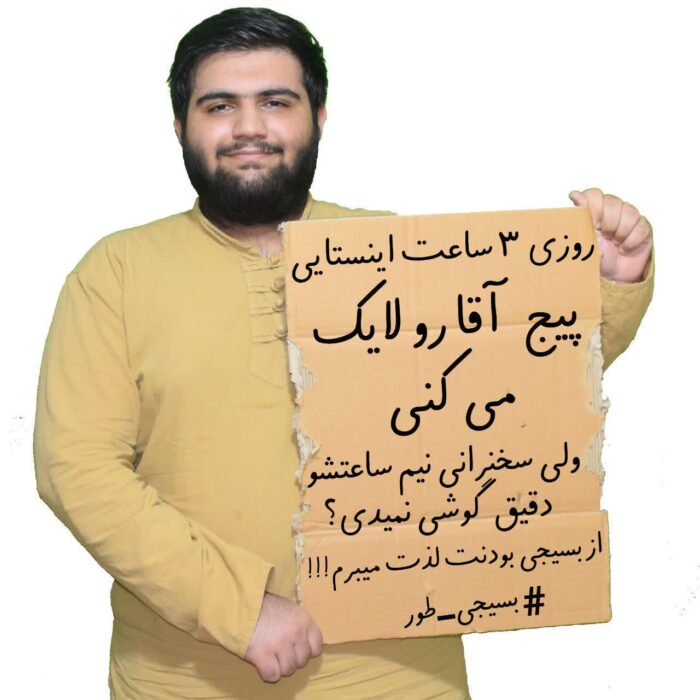 روزی ۳ ساعت اینستایی
پیج آقا رو لایک
می کنی
ولی سخنرانی نیم ساعتشو
دقیق گوشی نمیدی؟
از بسیجی بودنت لذت میبرم!!!
#بسیجی_طور